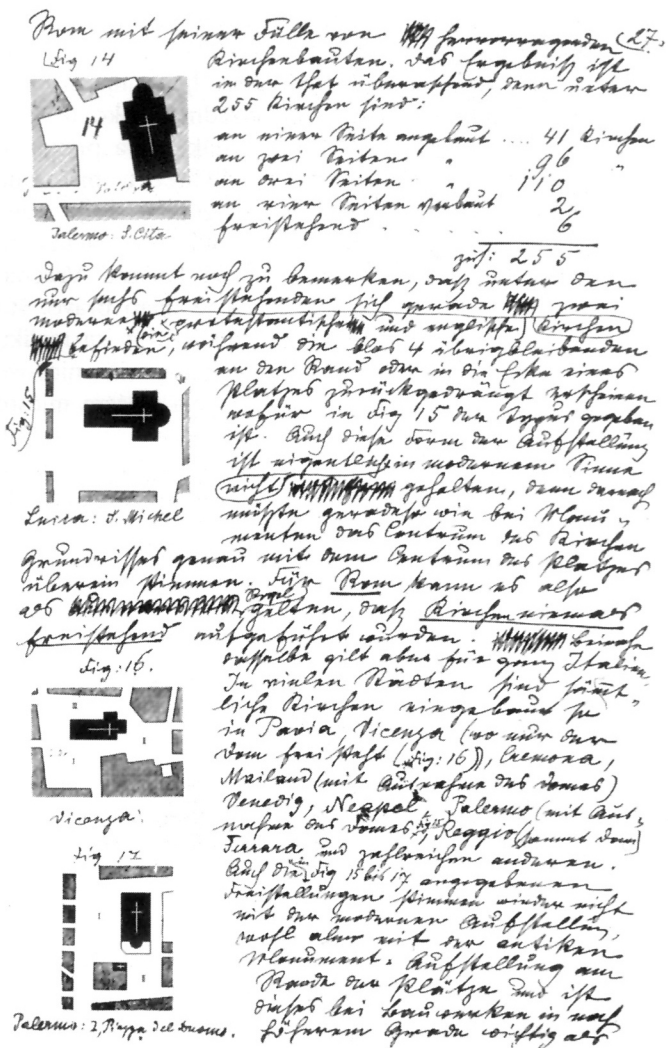 Rom mit seiner Fülle von hervorragenden 27.
Fig 14
Kirchenbauten. Das Ergebniß ist
in der That überraschend, denn unter
255 Kirchen sind:
14
an einer Seite angebaut .... 41 Kirchen
an zwei Seiten " 96 "
an drei Seiten " 110
an vier Seiten verbaut 2
freistehend . . . . . . 6
Palermo: S. Cita
zus: 255
Dazu kommt noch zu bemerken, daß unter den
nur sechs freistehenden sich gerade zwei
moderne protestantische und englische Kirchen
befinden, während die blos 4 übrigbleibenden
an den Rand oder in die Ecke eines
Platzes zurückgedrängt erscheinen
Fig: 15
wofür in Fig 15 der Typus gegeben
ist. Auch diese Form der Aufstellung
ist eigentlich in modernem Sinne
nicht gehalten, denn darnach
Lucca: S. Michel
müßte geradeso wie bei Monu-
menten das Centrum des Kirchen
Grundrisses genau mit dem Centrum des Platzes
überein stimmen. Für Rom kann es also
als Regel gelten, daß Kirchen niemals
freistehend aufgeführt wurden. Beinahe
Fig: 16.
dasselbe gilt aber für ganz Italien.
In vielen Städten sind sämmt-
liche Kirchen eingebaut so
II
I
in Pavia, Vicenza (wo nur der
Dom frei steht (Fig: 16)), Cremona,
Mailand (mit Ausnahme des Domes)
Vicenza:
Venedig, Neapel, Palermo (mit Aus-
nahme des Domes, Fig 17), Reggio (sammt Dom)
Fig 17
Ferrara und zahlreichen anderen.
Auch die in Fig 15 bis 17 angegebenen
Freistellungen stimmen wieder nicht
I
mit der modernen Aufstellung,
wohl aber mit der antiken
Monument-Aufstellung am
II
Rande der Plätze und ist
dieses bei Bauwerken in noch
Palermo: I, Piazza del Duomo.
höherem Grade wichtig als